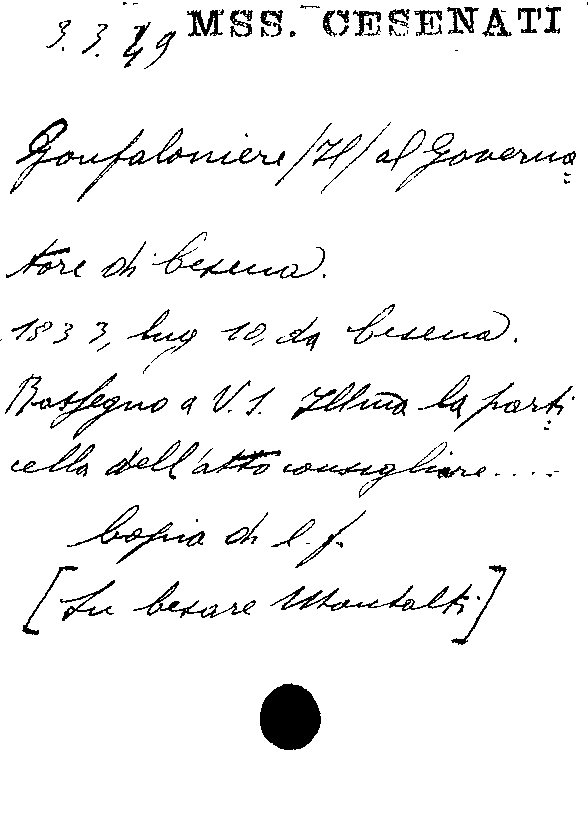 3.3.49 MSS. CESENATI
Gonfaloniere /Il/ al Governa=
tore di Cesena.
1833, lug 10, da Cesena.
Rassegno a V.S. Illma la parti=
cella dell'atto consigliare....
Copia di l. f.
[Su Cesare Montalti]